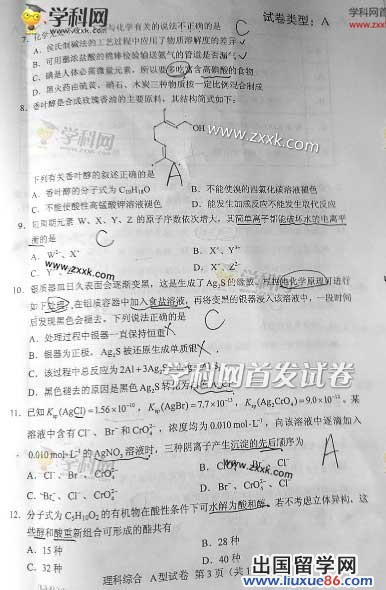 学科网
www.zxxk.com
学科网首
www.zxxk
试卷类型：A
7. 化学 与化学有关的说法不正确的是 C
A. 侯氏制碱法的工艺过程中应用了物质溶解度的差异
B. 可用蘸浓盐酸的棉棒检验输送氨气的管道是否漏气
C. 碘是人体必需微量元素，所以要多吃富含高碘酸的食物
D. 黑火药由硫黄、硝石、木炭三种物质按一定比例混合制成
8. 香叶醇是合成玫瑰香油的主要原料，其结构简式如下：
OH
学科网
www.zxxk.com
下列有关香叶醇的叙述正确的是 A
A. 香叶醇的分子式为C₁₀H₁₈O B. 不能使溴的四氯化碳溶液褪色
C. 不能使酸性高锰酸钾溶液褪色 D. 能发生加成反应不能发生取代反应
9. 短周期元素 W、X、Y、Z 的原子序数依次增大，其简单离子都能破坏水的电离平
衡的是 C
B. X⁺、Y³⁺
D. X⁺、Z²⁻
学科网
zxxk.com
10. 银质器皿日久表面会逐渐变黑，这是生成了Ag₂S的缘故，根据电化学原理可进行
如下处理：在铝质容器中加入食盐溶液，再将变黑的银器浸入该溶液中，一段时间
后发现黑色会褪去，下列说法正确的是
A. 处理过程中银器一直保持恒重 X C
B. 银器为正极，Ag₂S被还原生成单质银
C. 该过程中总反应为 2Al+3Ag₂S
D. 黑色褪去的原因是黑色Ag₂S转化为
学科网首发试卷
11. 已知 Ksp(AgCl)=1.56×10⁻¹⁰，Ksp(AgBr)=7.7×10⁻¹³，Ksp(Ag₂CrO₄)=9.0×10⁻¹²。某
溶液中含有Cl⁻、Br⁻和CrO₄²⁻，浓度均为0.010mol·L⁻¹，向该溶液中逐滴加入
0.010mol·L⁻¹的AgNO₃溶液时，三种阴离子产生沉淀的先后顺序为 A
A. Cl⁻、Br⁻、CrO₄²⁻ B. CrO₄²⁻、Br⁻、Cl⁻
C. Br⁻、Cl⁻、CrO₄²⁻ D. Br⁻、CrO₄²⁻、Cl⁻
12. 分子式为C₅H₁₀O₂的有机物在酸性条件下可水解为酸和醇，若不考虑立体异构，这
些醇和酸重新组合可形成的酯共有
A. 15种 B. 28种
C. 32种 D. 40种
理科综合 A型试卷 第3页（共1
出国留学网
www.liuxue86.com